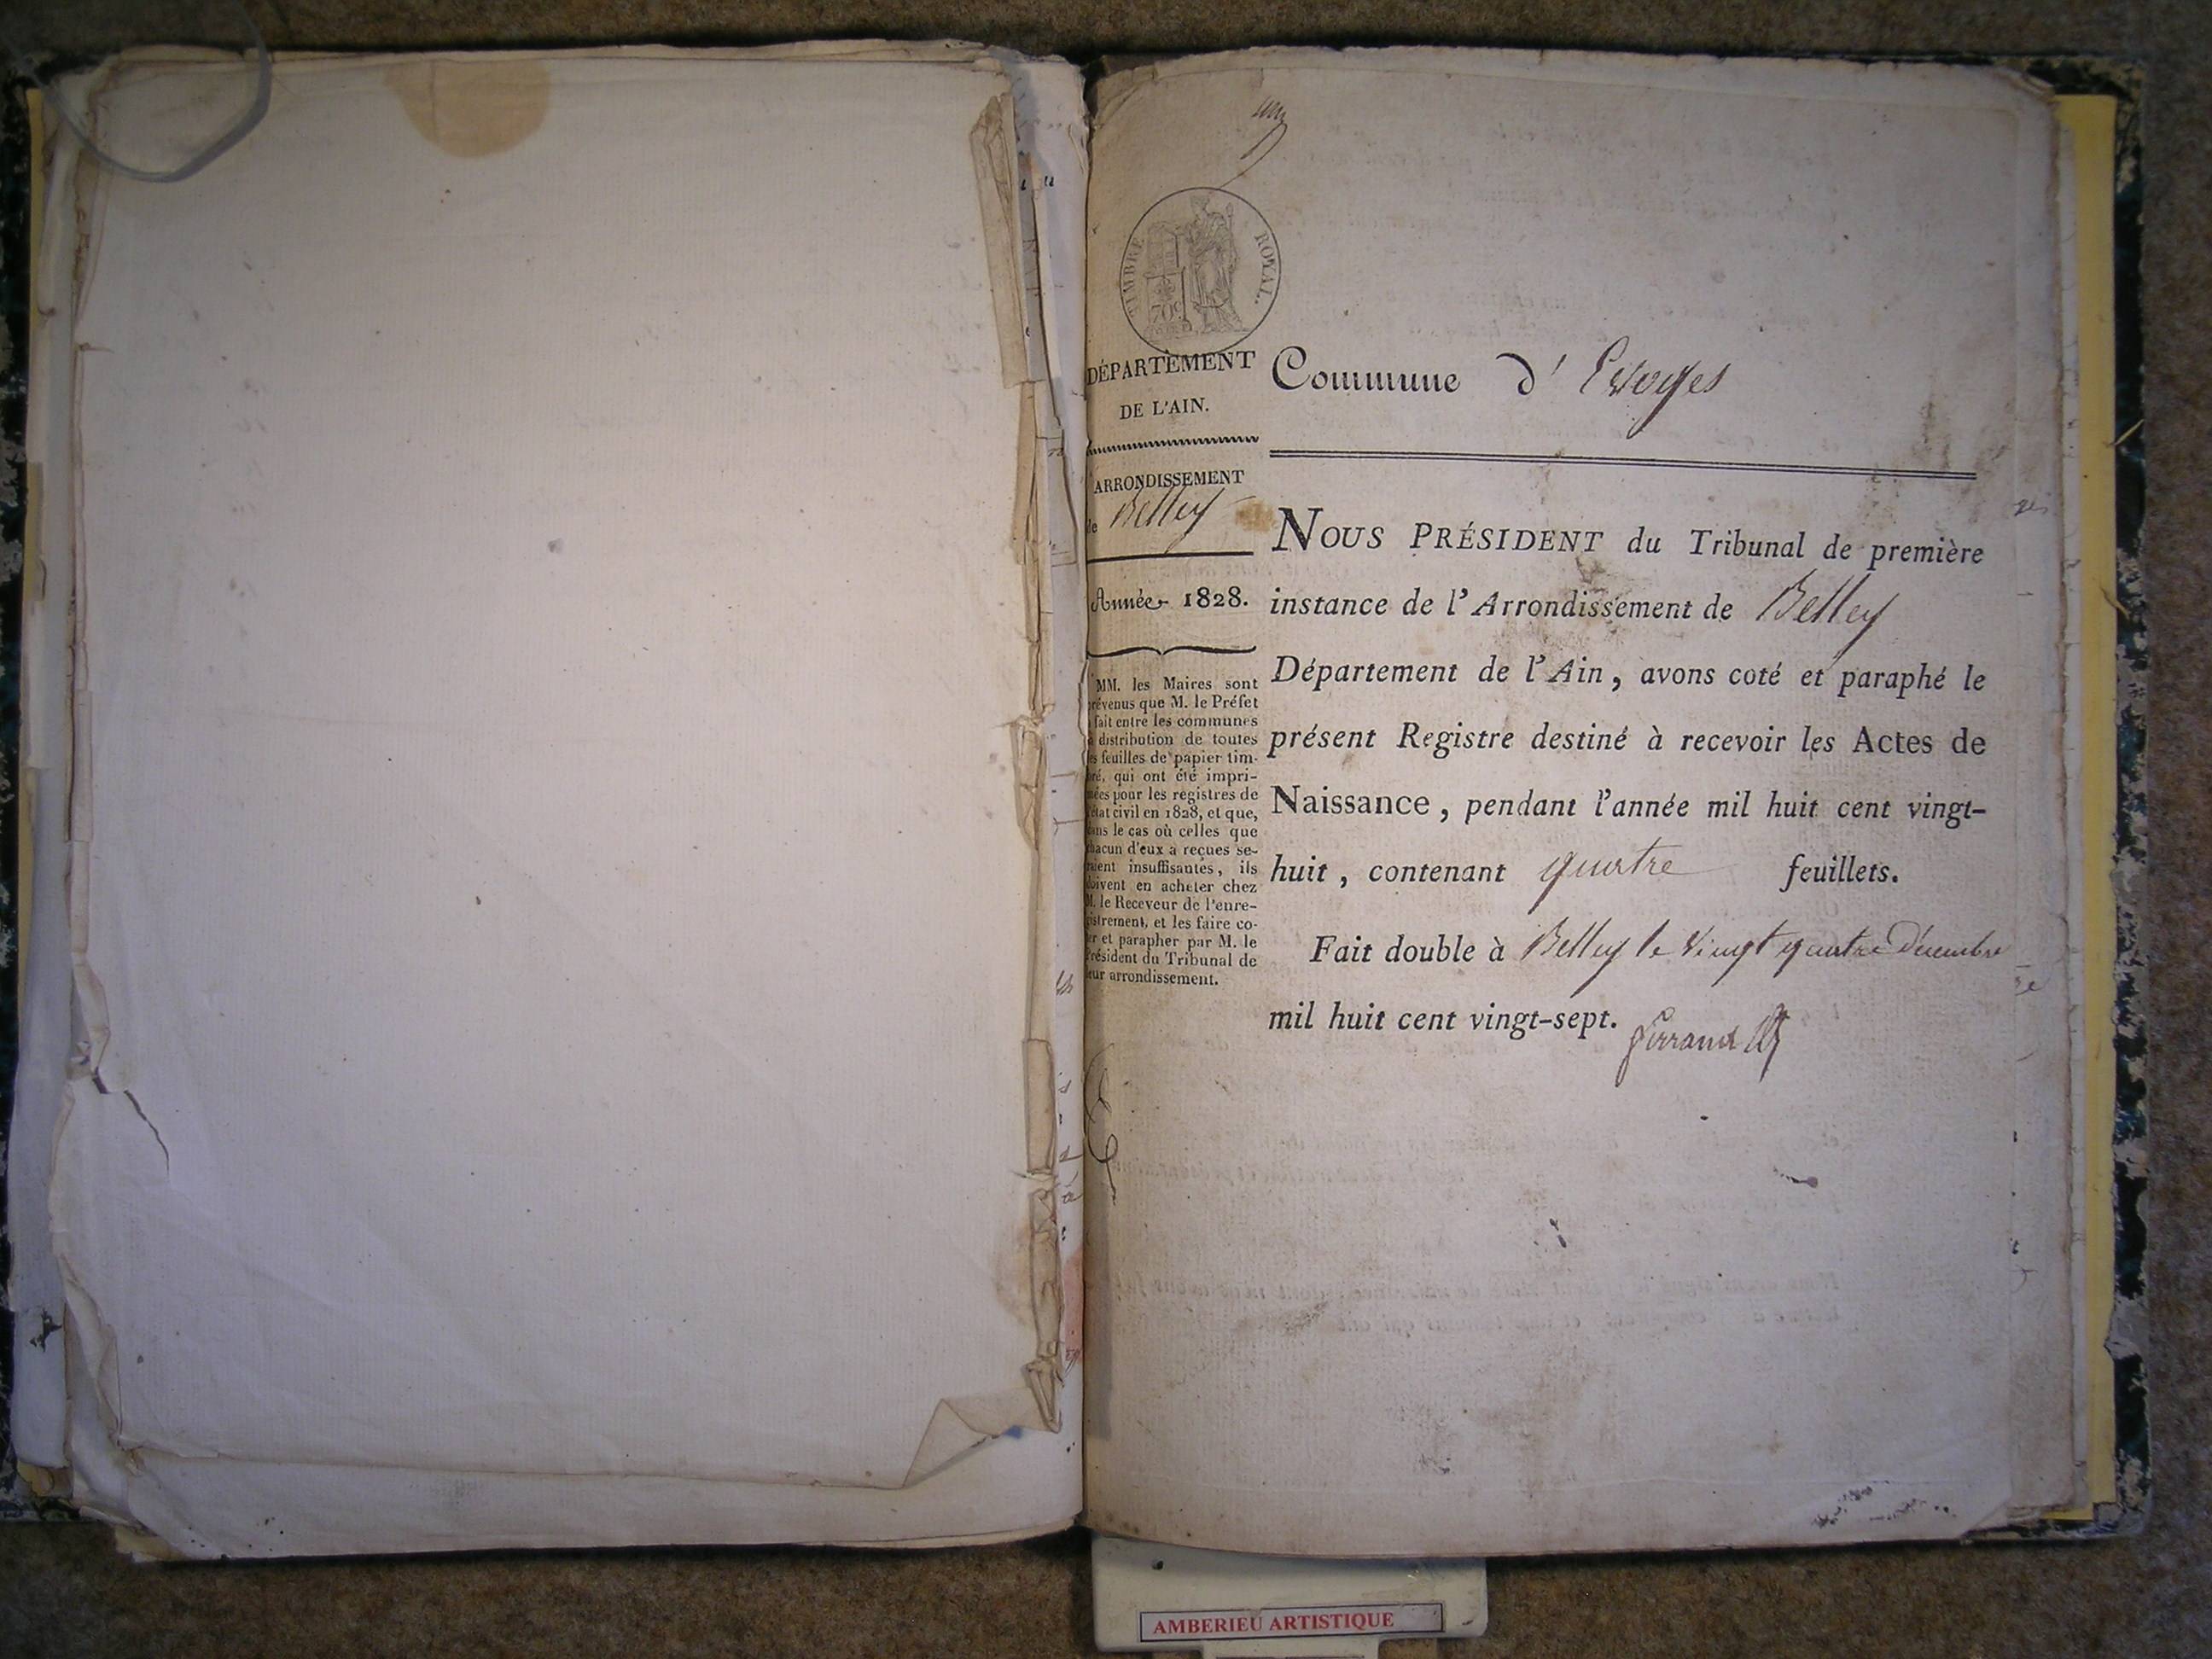 un
TIMBRE ROYAL.
70c
DÉPARTEMENT
DE L'AIN.
ARRONDISSEMENT
de Belley
Année 1828.
MM. les Maires sont
prévenus que M. le Préfet
a fait entre les communes
la distribution de toutes
les feuilles de papier tim-
bré, qui ont été impri-
mées pour les registres de
l'état civil en 1828, et que,
dans le cas où celles que
chacun d'eux a reçues se-
raient insuffisantes, ils
doivent en acheter chez
M. le Receveur de l'enre-
gistrement, et les faire co-
ter et parapher par M. le
Président du Tribunal de
leur arrondissement.
Commune d' Evoges
NOUS PRÉSIDENT du Tribunal de première
instance de l'Arrondissement de Belley
Département de l'Ain, avons coté et paraphé le
présent Registre destiné à recevoir les Actes de
Naissance, pendant l'année mil huit cent vingt-
huit, contenant quatre feuillets.
Fait double à Belley le vingt quatre Décembre
mil huit cent vingt-sept.
AMBERIEU ARTISTIQUE